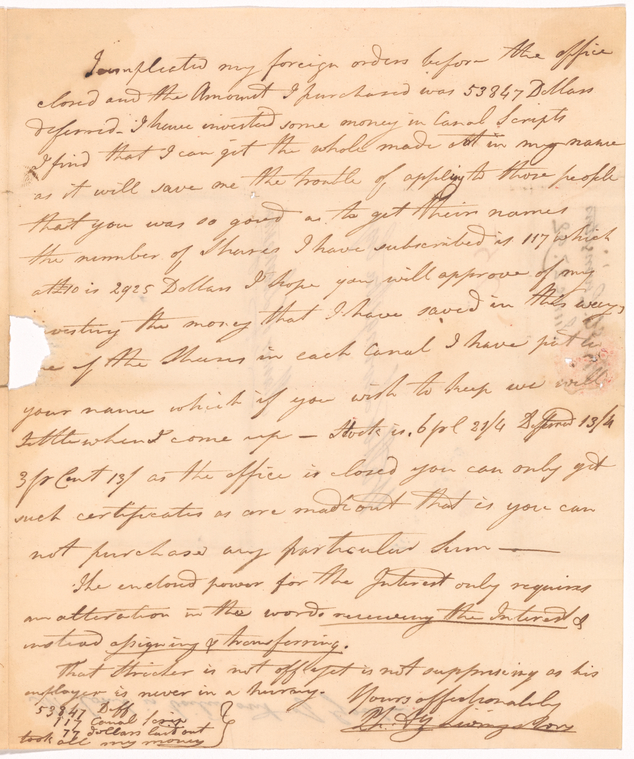 I completed my foreign orders before the office
closed and the Amount I purchased was 53847 Dollars
deferred - I have invested some money in Canal Scripts
I find that I can get the whole made out in my name
as it will save me the trouble of applying to those people
that you was so good as to get their names
the number of Shares I have subscribed is 117 which
is 2925 Dollars I hope you will approve of my
the money that I have saved in this way,
of the Shares in each Canal I have put in
your name which if you wish to keep we will
settle when I come up — Stock is. 6 pr C 21/4 Deffered 13/4
3 pr Cent 13/ as the office is closed you can only get
such certificates as are made out that is you can
not purchase any particular Sum —
The enclosd power for the Interest only requires
an alteration in the words receiving the Interest &
instead assigning & transferring.
That is not off yet is not supprising as his
employer is never in a hurry.
Yours affectionably
53847 Deff
117 Canal Scrip
77 dollars laid out
took all my money